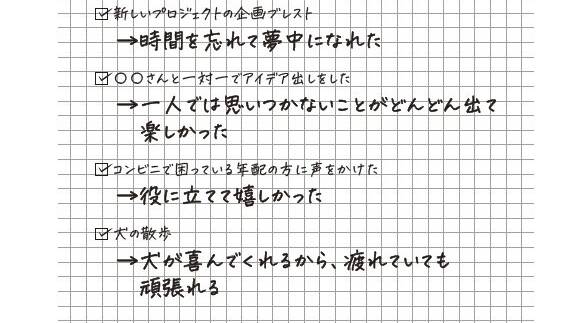 ☑新しいプロジェクトの企画ブレスト
→時間を忘れて夢中になれた
☑〇〇さんと一対一でアイデア出しをした
→一人では思いつかないことがどんどん出て
楽しかった
☑コンビニで困っている年配の方に声をかけた
→役に立てて嬉しかった
☑犬の散歩
→犬が喜んでくれるから、疲れていても
頑張れる